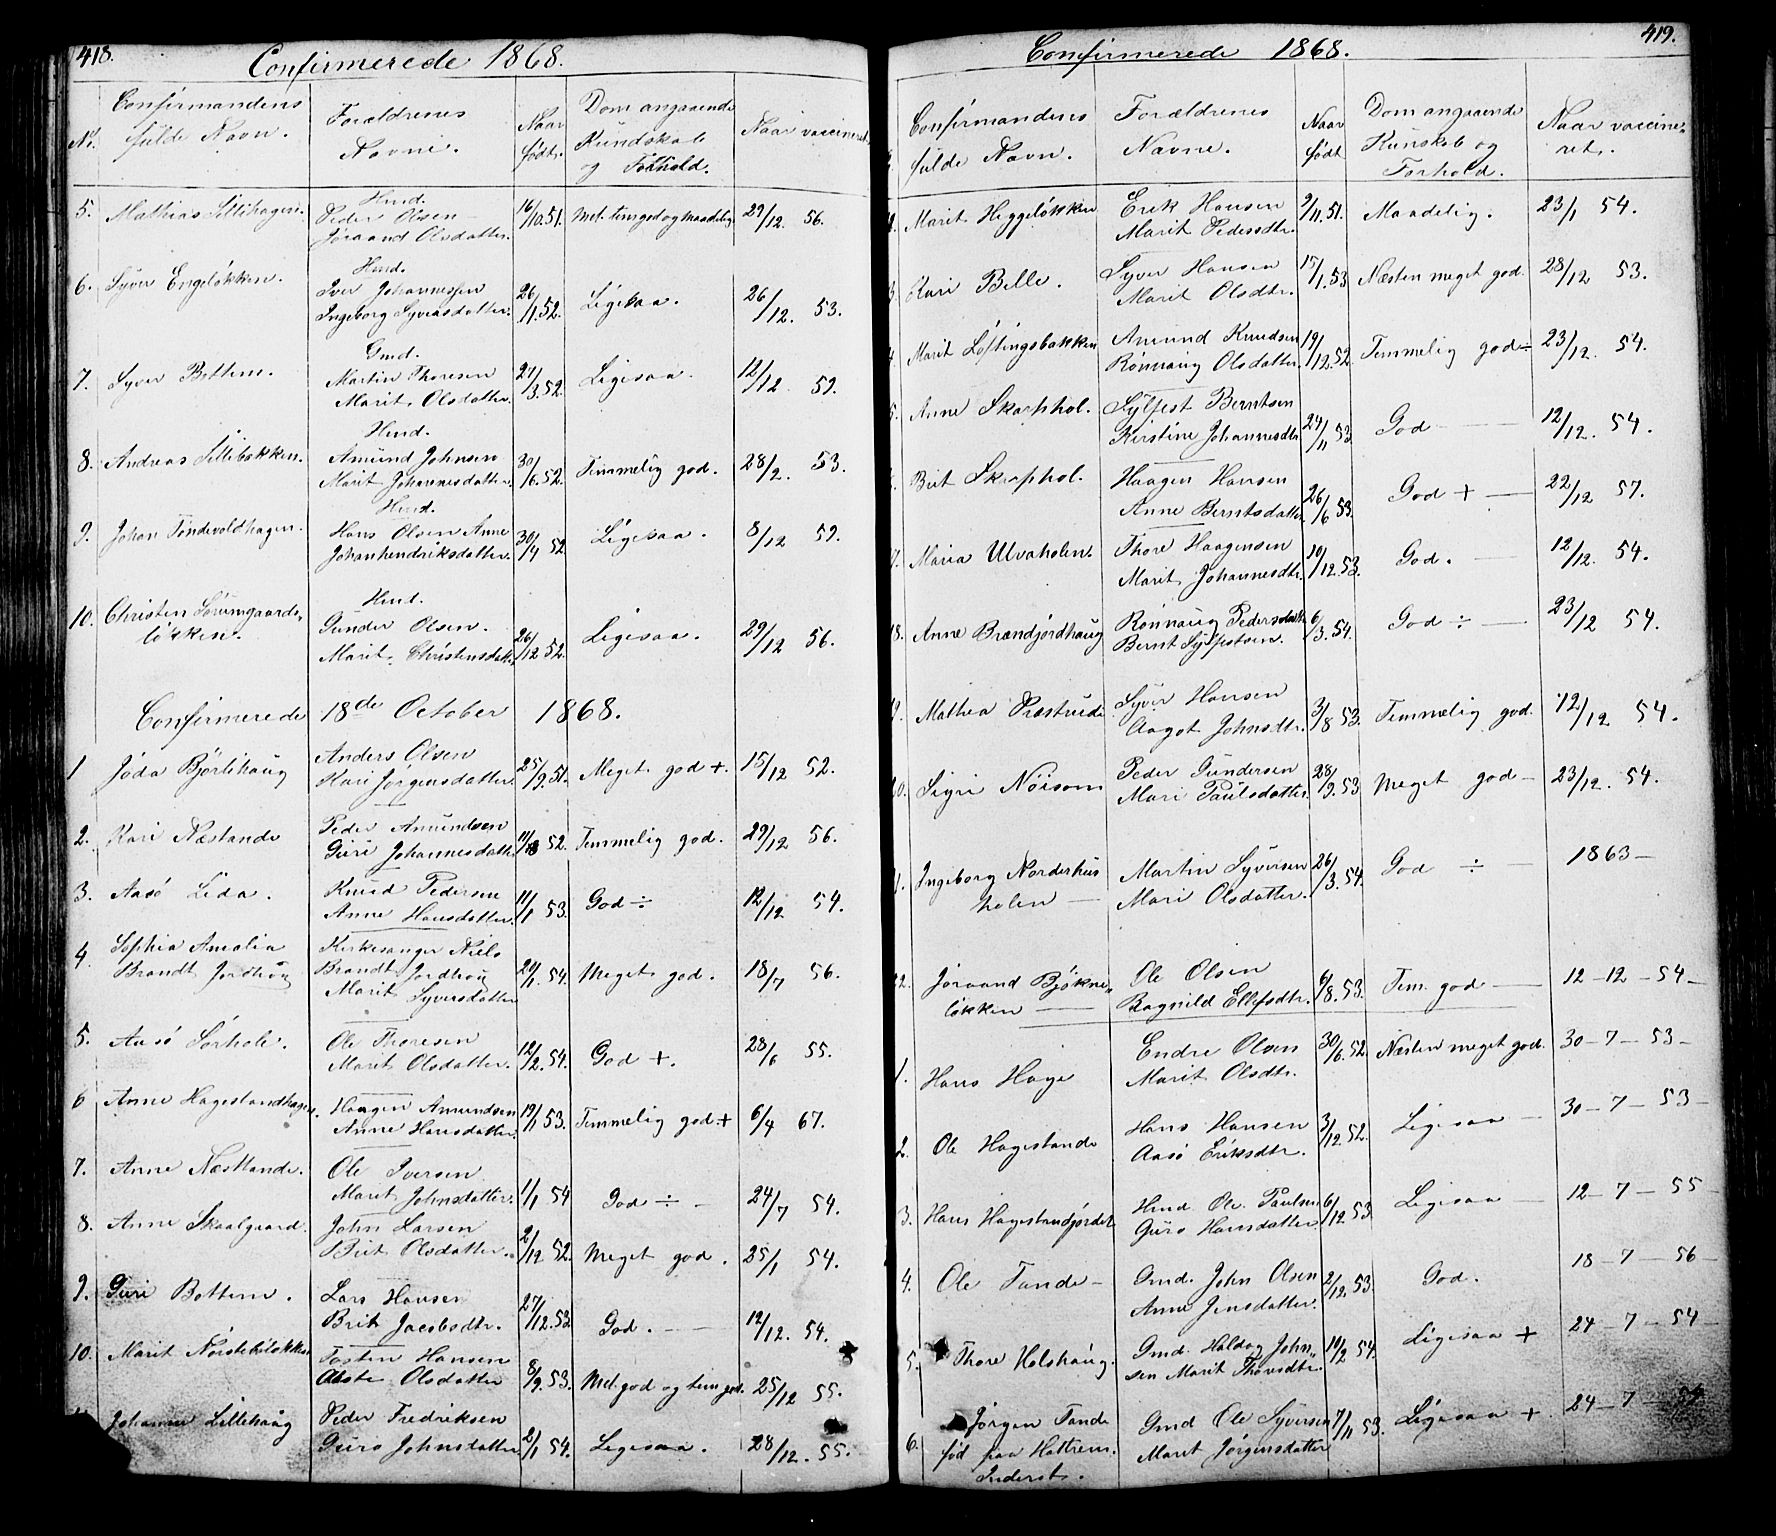 418.
Confirmerede 1868.
No.
Confirmandens
fulde Navn.
Forældrenes
Navne.
Naar
født.
Dom angaaende
Kundskab
og Forhold.
Naar vaccineret.
5. Mathias Lillihagen.
Hmd.
Peder Olsen
Joraand Olsdatter.
16/10. 51. Met. tem. god og maadelig 29/12 56.
6. Syver Engeløkken.
Hmd.
Iver Johannessen
Ingeborg Syversdatter.
26/11. 52. Ligesaa. 26/12. 53.
7. Syver Bottem.
Gmd.
Martin Thoresen
Marit Olsdatter.
27/3. 52. Ligesaa. 12/12 52.
8. Andreas Lillibakken.
Hmd.
Amund Johnsen
Marit Johannesdatter.
30/6. 52. Temmelig god. 28/2. 53.
9. Johan Tondevoldhagen.
Hmd.
Hans Olsen Anne
Johanhendriksdatter.
30/4 52 Ligesaa. 8/12 52.
10. Christen Sørumgaards-
løkken.
Hmd.
Gunder Olsen.
Marit Christensdatt.
26/12 52. Ligesaa. 29/12 56.
Confirmerede 18de October 1868.
1 Joda Bjørlihaug
Anders Olsen
Kari Jørgensdatter.
25/9. 51. Meget god +. 15/12 52.
2. Kari Næstande
Peder Amundsen
Guri Johannesdatter.
52. Temmelig god. 29/12 56.
3. Aaso Lida.
Knud Pedersen
Anne Hansdatter.
11/1 53. God ÷ 12/12 54.
4. Sophia Amalia
Brandt Jordhoy
Kirkesanger Niels
Brandt Jordhoy
Marit Syversdatter
54. Meget god. 18/7 56.
5. Aaso Sorhole.
Ole Thoresen
Marit Olsdatter.
12/2. 54. God +. 28/6 55.
6 Anne Hagestandhagen.
Haagen Amundsen
Anne Hansdatter.
19/1 53. Temmelig god + 6/4 67.
7. Anne Næstande.
Ole Iversen
Marit Johnsdatter.
1/1 54 God ÷ - 24/7 54.
8. Anne Skaalgaard.
John Larsen
Brit Olsdatter.
2/12 52. Meget god. 25/1 54.
9. Guri Bottem.
Lars Hansen
Brit Jacobsdtr.
27/12. 53 God. — 12/12. 54.
10. Marit Nørsteboløkken
Tosten Hansen
Olsdatter
8/9. 53. Met. god og tem. god. 25/12 55.
Johanne Lillehaug
Peder Fredriksen
Guro Johnsdatter
2/1 54. Ligesaa. 28/12. 55.
419.
Confirmerede 1868.
Confirmandens
fulde Navn.
Forældrenes
Navne.
Naar
født
Dom angaaende
Kunskab og
Forhold.
Naar vaccine-
ret.
Marit Heggeløkken
Erik Hansen
Marit Pedersdtr.
9/11. 51. Maadelig. 23/1 54.
3. Kari Belle.
Syver Hansen
Marit Olsdtr.
15/1. 53 Næsten meget god. 28/12 53.
4. Marit Løftingsbakken
Amund Knudsen
Rønnaug Olsdatter.
19/12. 52 Temmelig god ÷ 23/12. 54.
5. Anne Skarphol.
Sylfest Berntsen
Kirstine Johannesdtr.
24/11 53. God — 12/12. 54.
Brit Skarphol.
Haagen Hansen
Anne Berntsdatter
26/6 53. God + — 22/12 57.
7. Maria Ulvaholen.
Thore Haagensen
Marit Johannesdtr.
10/12. 53. God. — 12/12. 54.
18. Anne Brændjordhaug
Rønnaug Pedersdatt.
Bernt Sylfestsen.
6/3. 54. God ÷ — 23/12 54.
9. Mathea Præstrude
Syver Hansen
Aagot Johnsdtr.
3/8 53. Temmelig god. 12/12 54.
20. Sigri Nøisom
Peder Gundersen
Mari Paulsdatter.
28/9. 53 Meget god — 23/12. 54.
1. Ingeborg Norderhus
holen —
Martin Syversen
Mari Olsdatter.
26/3. 54. God ÷ — 1863 —
22. Joraand Bjøkne-
løkken —
Ole Olsen
Ragnild Ellefsdtr.
6/8. 53. Tem. god — 12 - 12 - 54 -
1. Hans Hage
Endre Olsen
Marit Olsdtr.
30/6. 52 Næsten meget god. 30 - 7 - 53 -
2. Ole Hagestande
Hans Hansen
Aaso Eriksdtr.
3/12. 52. Ligesaa — 30 - 7 - 53 -
3. Hans Hagestandjordet
Hmd Ole Paulsen
Guro Hansdatter
6/12. 53. Ligesaa — 12 - 7 - 55
4. Ole Tande —
Gmd. John Olsen
Anne Jensdatter.
2/12. 53. God. 18 - 7 - 56 -
5. Thore Holshaug.
Gmd. Haldog John-
sen Marit Thorsdtr.
10/2 54. Ligesaa + 24 - 7 - 54 -
6. Jørgen Tande
fød paa Hattrem.
Inderst.
Gmd Ole Syversen
Marit Jørgensdatter
7/11 53. Ligesaa + 24 - 7 - 54.